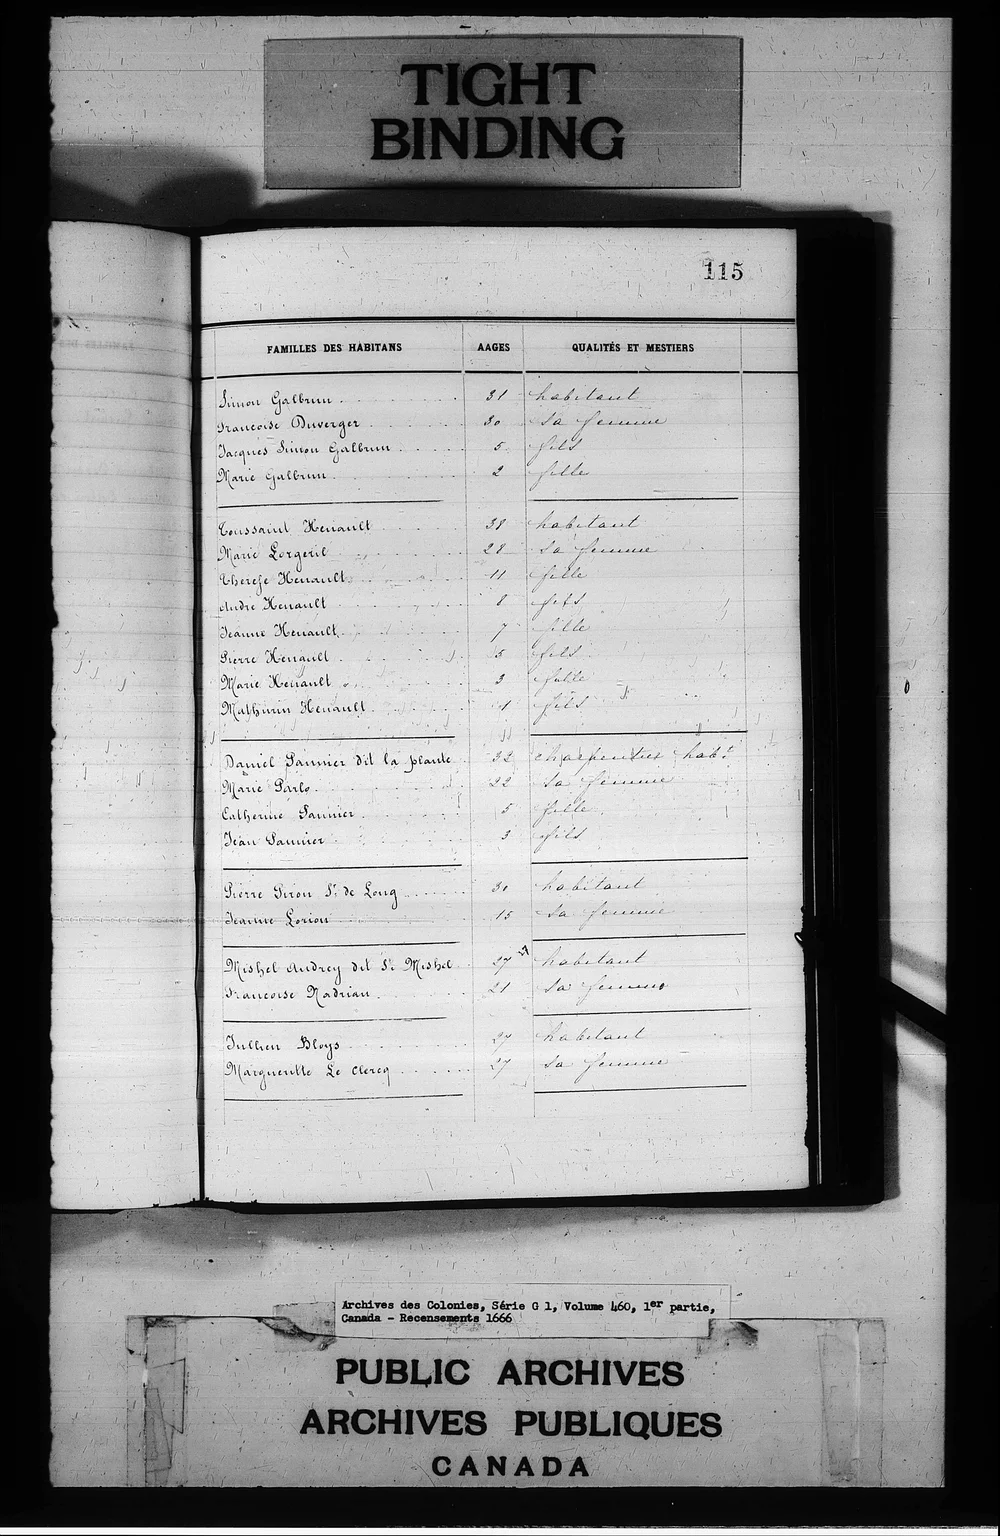 TIGHT
BINDING
115
FAMILLES DES HABITANS AAGES QUALITÉS ET MESTIERS
Simon Galbrun 31 habitant
Francoise Duverger 30 sa femme
Jacques Simon Galbrun 5 fils
Marie Galbrun 2 fille
Toussaint Henault 38 habitant
Marie Lorgeril 28 sa femme
Therese Henault 11 fille
André Henault 8 fils
Jeanne Henault 7 fille
Pierre Henault 5 fils
Marie Henault 3 fille
Mathurin Henault 1 fils
Daniel Pannier dit la plante 32 charpentier habt
Marie Parlo 22 sa femme
Catherine Pannier 5 fille
Jean Pannier 3 fils
Pierre Piron Sr de Long 30 habitant
Jeanne Lorion 15 sa femme
Mishel Audrey dit St Mishel 27 habitant
Francoise Nadrian 21 sa femme
Jullien Bloys 27 habitant
Margueritte Le Clercq 27 sa femme
Archives des Colonies, Série G 1, Volume 460, 1er partie,
Canada - Recensements 1666
PUBLIC ARCHIVES
ARCHIVES PUBLIQUES
CANADA